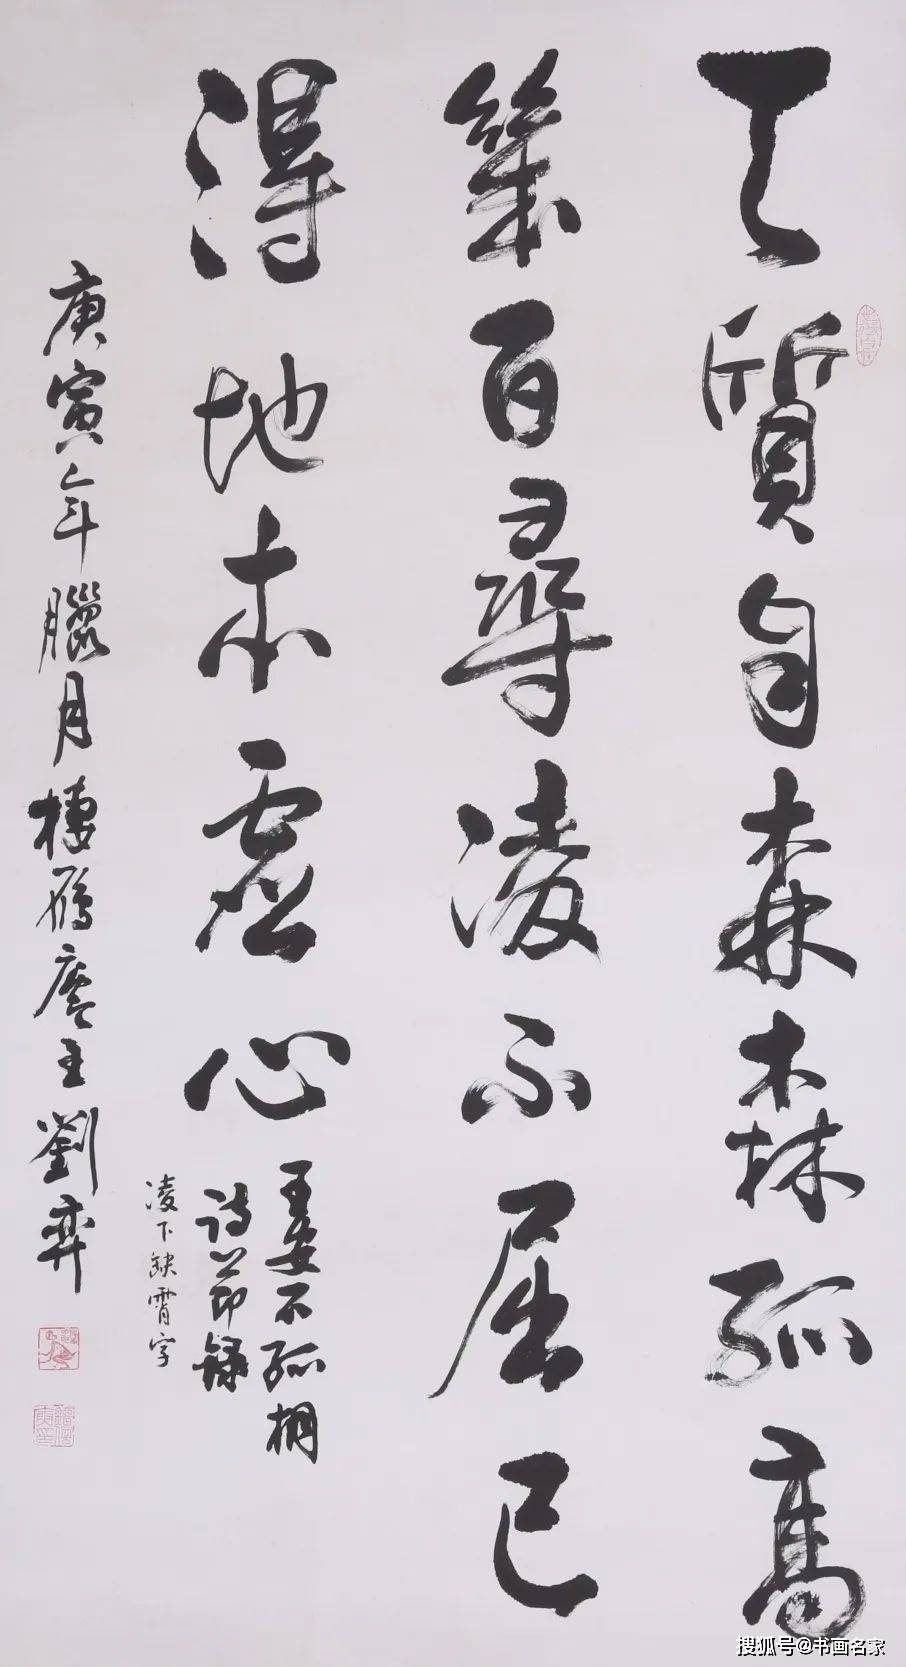 天質自森森孤高
幾百尋凌不屈已
得地本虛心
王安石孤桐
詩節録
凌下缺霄字
庚寅年臘月棲雁廬主劉弈
搜狐号@书画名家